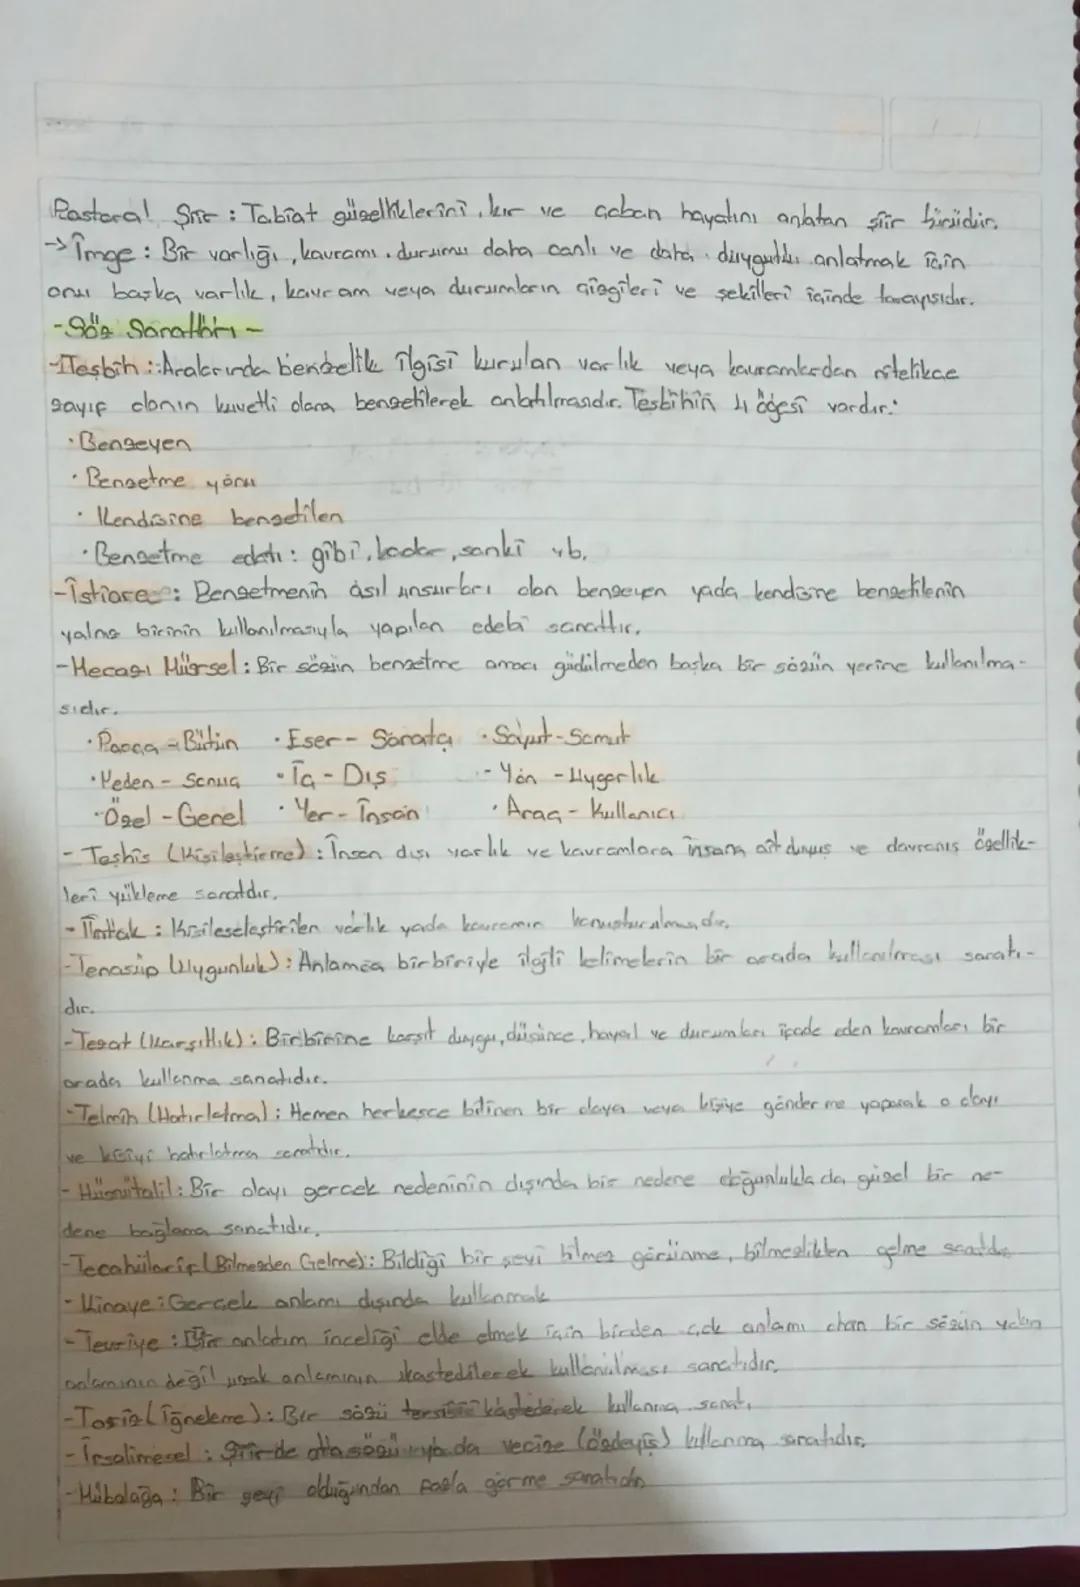 Pastoral Şiir : Tabiat güzelliklerini, kır ve çoban hayatını anlatan şiir türüdür.
→ İmge : Bir varlığı, kavramı, durumu daha canlı ve daha duygulu anlatmak için
onu başka varlık, kavram veya durumların çizgileri ve şekilleri içinde tasarısıdır.
- Söz Sanatları -
- Teşbih : Aralarında benzerlik ilgisi kurulan varlık veya kavramlardan nitelikçe
zayıf olanın kuvetli olana benzetilerek anlatılmasıdır. Teşbihin 4 öğesi vardır:
· Benzeyen
· Benzetme yönü
· Kendisine benzetilen
· Benzetme edatı : gibi, kadar, sanki vb.
- İstiare : Benzetmenin asıl unsurları olan benzeyen yada kendisine benzetilenin
yalnız birinin kullanılmasıyla yapılan edebi sanattır.
- Mecazı Mürsel : Bir sözün benzetme amacı güdülmeden başka bir sözün yerine kullanılma-
sıdır.
· Parça - Bütün · Eser - Sanatçı · Soyut - Somut
· Neden - Sonuç · İç - Dış · Yön - Uygarlık
· Özel - Genel · Yer - İnsan · Araç - Kullanıcı
- Teşhis (Kişileştirme) : İnsan dışı varlık ve kavramlara insana ait duyuş ve davranış özellik-
leri yükleme sanatıdır.
- İntak : Kişileseleştirilen varlık yada kavramın konuşturulmasıdır.
- Tenasüp (Uygunluk) : Anlamca birbiriyle ilgili kelimelerin bir arada kullanılması sanatı-
dır.
- Tezat (Karşıtlık) : Birbirine karşıt duygu, düşünce, hayal ve durumları ifade eden kavramları bir
arada kullanma sanatıdır.
- Telmih (Hatırlatma) : Hemen herkesce bilinen bir olaya veya kişiye gönderme yaparak o olayı
ve kişiyi hatırlatma sanatıdır.
- Hüsnütalil : Bir olayı gerçek nedeninin dışında bir nedene çoğunlukla da güzel bir ne-
dene bağlama sanatıdır.
- Tecahülarif (Bilmezden Gelme) : Bildiği bir şeyi bilmez görünme, bilmezlikten gelme sanatıdır
- Kinaye : Gerçek anlamı dışında kullanmak
- Tevriye : Bir anlatım inceliği elde etmek için birden çok anlamı olan bir sözün yakın
anlamının değil uzak anlamının kastedilerek kullanılması sanatıdır.
- Tariz (İğneleme) : Bir sözü tersini kastederek kullanma sanatı
- İrsalimesel : Şiirde atasözü ya da vecize (özdeyiş) kullanma sanatıdır.
- Mübalağa : Bir şeyi olduğundan fazla görme sanatıdır